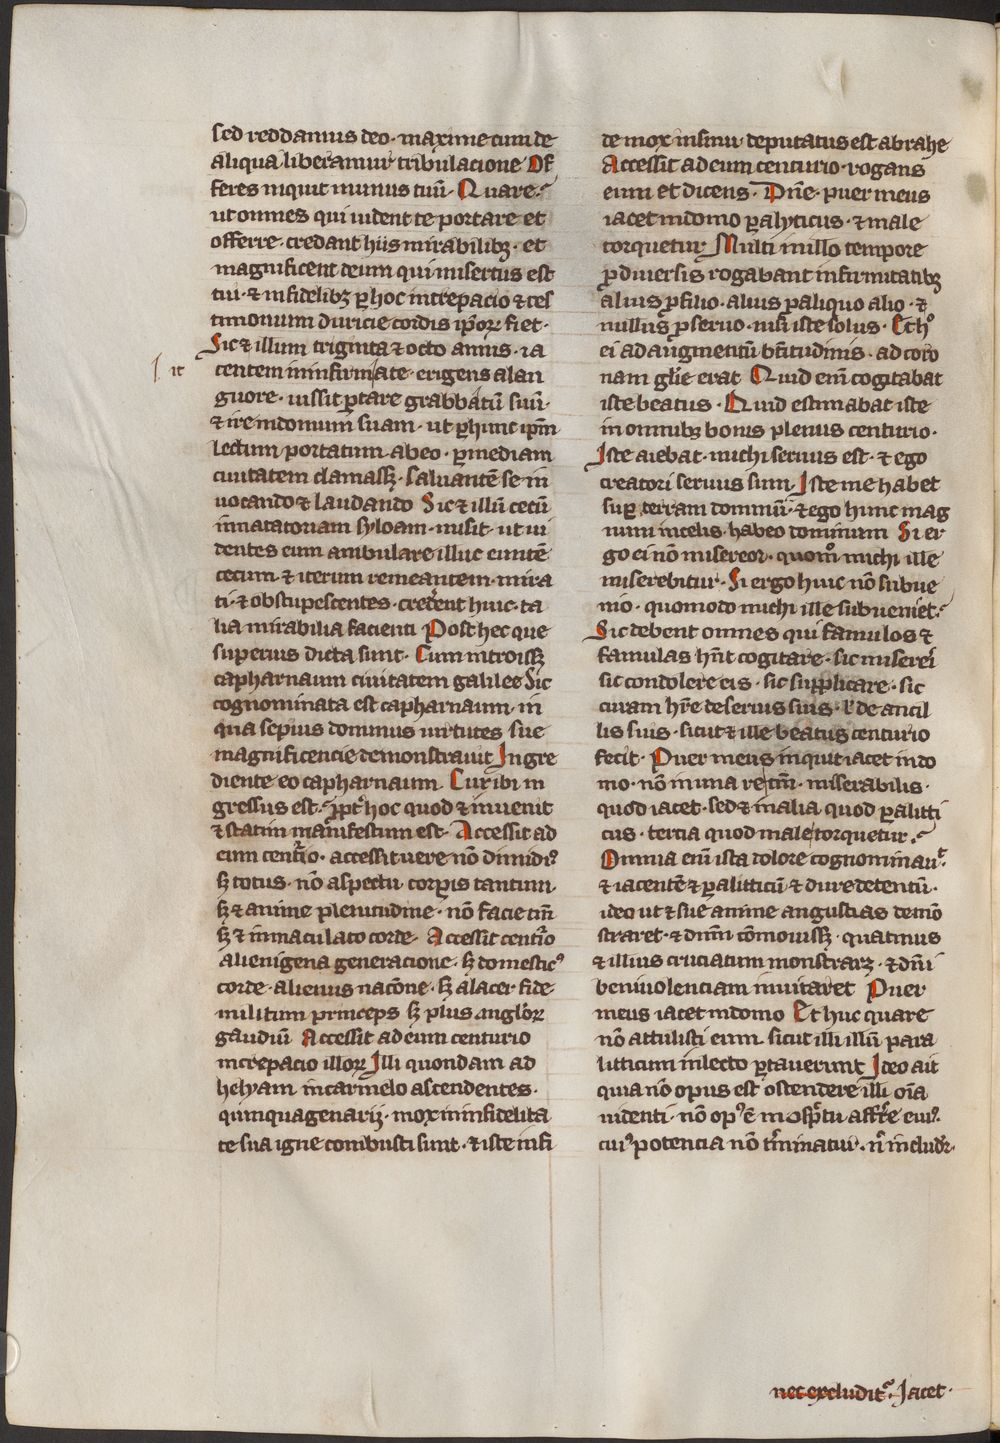 sed reddamus deo · maxime cum de
aliqua liberamur tribulacione Of
feres inquit munus tuū · Quare ·
ut omnes qui uident te portare et
offerre · credant hiis mirabilibꝫ · et
magnificent deum qui misertus est
tui · ⁊ infidelibꝫ ꝑ hoc increpacio ⁊ tes
timonium duricie cordis ip̄oꝝ fiet ·
Sic ⁊ illum triginta ⁊ octo annis · ia
it
centem in infirmate · erigens a lan
guore · iussit ꝑtare grabbatū suū ·
⁊ ire in domum suam · ut ꝑ hunc ip̄m
lectum portatum · ab eo · ꝑ mediam
ciuitatem clamassꝫ · saluantē se in
uocando ⁊ laudando Sic ⁊ illū cecū
in natatoriam syloam · misit · ut ui
dentes eum ambulare illuc euntē
cecum · ⁊ iterum remeantem · mira
ti · ⁊ obstupescentes · crederent huic · ta
lia mirabilia facienti Post hec que
superius dicta sunt · Cum introissꝫ
capharnaum ciuitatem galilee Sic
cognominata est capharnaum · in
qua sepius dominus uirtutes sue
magnificencie demonstrauit Ingre
diente eo capharnaum · Cur ibi in
gressus est · ꝓpt̄ hoc quod ⁊ inuenit
⁊ statim manifestum est · Accessit ad
eum cent̄io · accessit uere nō dimidiꝰ
sꝫ totus · nō aspectu corꝑis tantum ·
sꝫ ⁊ anime plenitudine · nō facie tm̄
sꝫ ⁊ inmaculato corde · Accessit cent̄io
alienigena generacione · sꝫ domesticꝰ
corde · alienus nac̄one · sꝫ alacer fide ·
militum princeps sꝫ plus angl̄oꝝ
gaudiū Accessit ad eum centurio
increpacio illoꝝ Illi quondam ad
helyam in carmelo ascendentes ·
quinquagenarij · mox in infidelita
te sua igne combusti sunt · ⁊ iste in fi
de mox in sinu · deputatus est abrahe
Accessit ad eum centurio · rogans
eum et dicens · Dn̄e · puer meus
iacet in domo ꝑalyticus · ⁊ male
torquetur Multi in illo tempore
ꝓ diuersis rogabant infirmitatibꝫ
alius ꝓ filio · alius ꝓ aliquo alio · ⁊
nullus ꝓ seruo · nisi iste solus · Et hͦ
ei ad augmentū bt̄itudinis · ad coro
nam gl̄ie erat Quid eni̅ cogitabat
iste beatus · Quid estimabat iste
in omnibꝫ bonis plenus centurio ·
Iste aiebat · michi seruus est · ⁊ ego
creatori seruus sum · Iste me habet
suꝑ terram dominū · ⁊ ego hunc mag
num in celis · habeo dominum Si er
go ei nō misereor · quom̊ michi ille
miserebitur · Si ergo huic nō subue
nio · quomodo michi ille subueniet ·
Sic debent omnes qui famulos ⁊
famulas hn̄t cogitare · sic misereri
sic condolere eis · sic supplicare · sic
curam hr̄e de seruis suis · ł de ancil
lis suis · sicut ⁊ ille beatus centurio
fecit · Puer meus inquit iacet in do
mo · nō in una re tm̄ · miserabilis ·
quod iacet · sed ⁊ in alia quod ꝑalitti
cus · tercia quod male torquetur ·
Omnia eni̅ ista dolore cognominauͭ ·
⁊ iacentē ⁊ ꝑalitticū ⁊ dure detentū ·
ideo ut ⁊ sue anime angustias demō
straret · ⁊ dnm̄ cōmouissꝫ · quatinus
⁊ illius cruciatum monstraꝛꝫ · ⁊ dn̄i
beniuolenciam inuitaret Puer
meus iacet in domo Et huc quare
nō attulisti eum · sicut illi illū para
litticum in lecto ꝑtauerunt Ideo ait
quia nō opus est ostendere illi oīa
uidenti · nō opꝰ ē in osp̄tu afft̄e eiuꝰ ·
cuiꝰ potencia nō t̄minatur · n̄ includr̄ ·
nec excludit̄ · Jacet ·